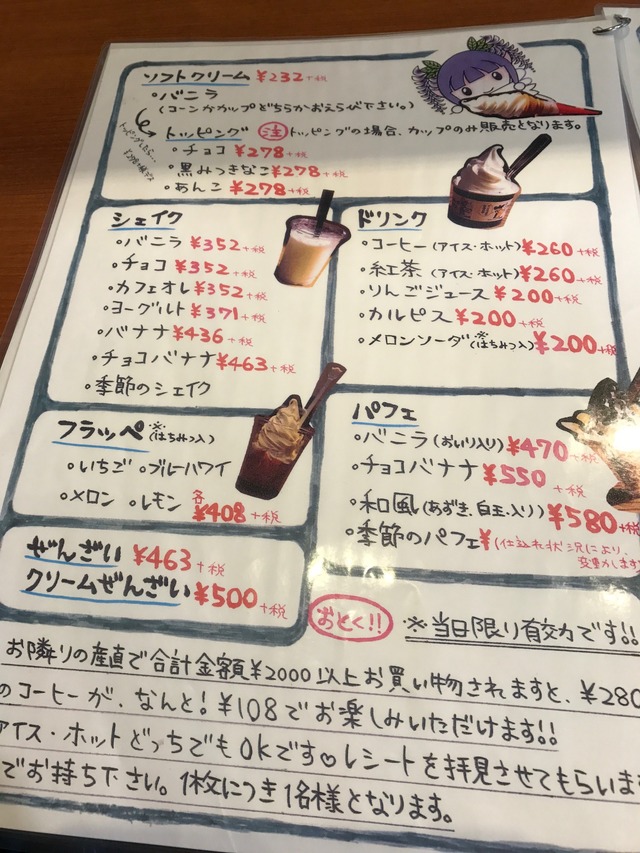 ソフトクリーム ¥232+税
・バニラ
(コーンかカップどちらかおえらび下さい。)
トッピング 注 トッピングの場合、カップのみ販売となります。
・チョコ ¥278+税
・黒みつきなこ¥278+税
・あんこ ¥278+税
シェイク
・バニラ ¥352+税
・チョコ ¥352+税
・カフェオレ¥352+税
・ヨーグルト ¥371+税
・バナナ¥436+税
・チョコバナナ¥463+税
・季節のシェイク
ドリンク
・コーヒー(アイス・ホット)¥260+税
・紅茶(アイス・ホット)¥260+税
・りんごジュース ¥200+税
・カルピス ¥200+税
・メロンソーダ(※はちみつ入)¥200+税
フラッペ(※はちみつ入)
・いちご ・ブルーハワイ
・メロン ・レモン 各¥408+税
パフェ
・バニラ(おいり入り)¥470+税
・チョコバナナ ¥550+税
・和風(あずき、白玉、入り)¥580+税
・季節のパフェ¥(仕込れ状況により、
変動します
ぜんざい ¥463+税
クリームぜんざい¥500+税
おとく!! ※当日限り有効です!!
お隣りの産直で合計金額¥2000以上お買い物されますと、¥280
のコーヒーが、なんと!¥108でお楽しみいただけます!!
アイス・ホットどっちでもOKです♡レシートを拝見させてもらいま
でお持ち下さい。1枚につき1名様となります。